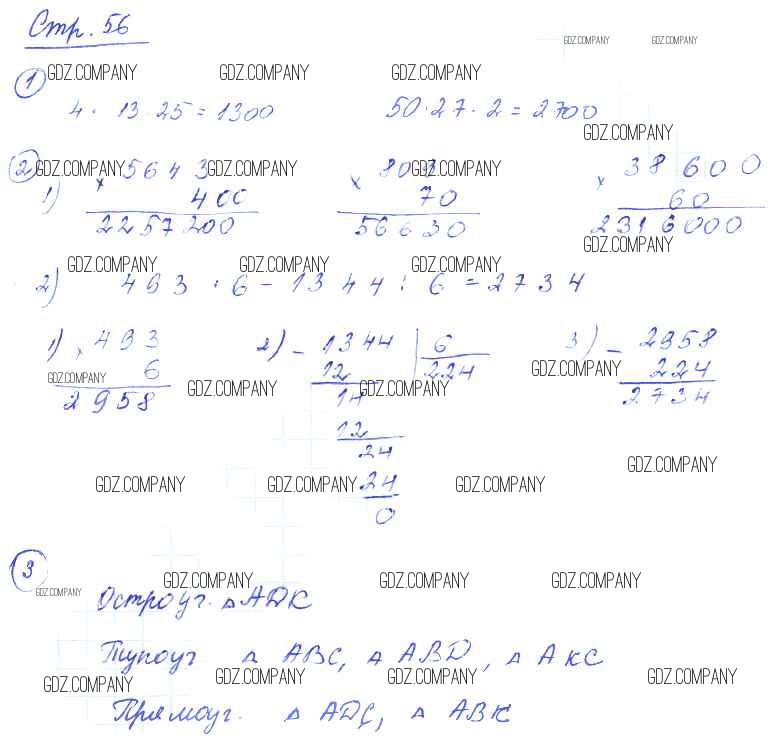 Стр. 56
GDZ.COMPANY GDZ.COMPANY
1 GDZ.COMPANY GDZ.COMPANY GDZ.COMPANY
4 · 13 · 25 = 1300 50 · 27 · 2 = 2700
GDZ.COMPANY
2 GDZ.COMPANY GDZ.COMPANY GDZ.COMPANY
1) × 5643 × 809 × 38600
400 70 60
2257200 56630 2316000
GDZ.COMPANY
GDZ.COMPANY GDZ.COMPANY GDZ.COMPANY
2) 493 · 6 - 1344 : 6 = 2734
1) × 493 2) - 1344 6 3) - 2958
6 12 224 224
GDZ.COMPANY GDZ.COMPANY
2958 14 2734
GDZ.COMPANY GDZ.COMPANY
12
24
GDZ.COMPANY
GDZ.COMPANY GDZ.COMPANY GDZ.COMPANY
24
0
3
GDZ.COMPANY GDZ.COMPANY GDZ.COMPANY
GDZ.COMPANY
Остроуг. △ ADK
Тупоуг △ ABC, △ ABD, △ AKC
GDZ.COMPANY GDZ.COMPANY GDZ.COMPANY GDZ.COMPANY
Прямоуг. △ ADC, △ ABK